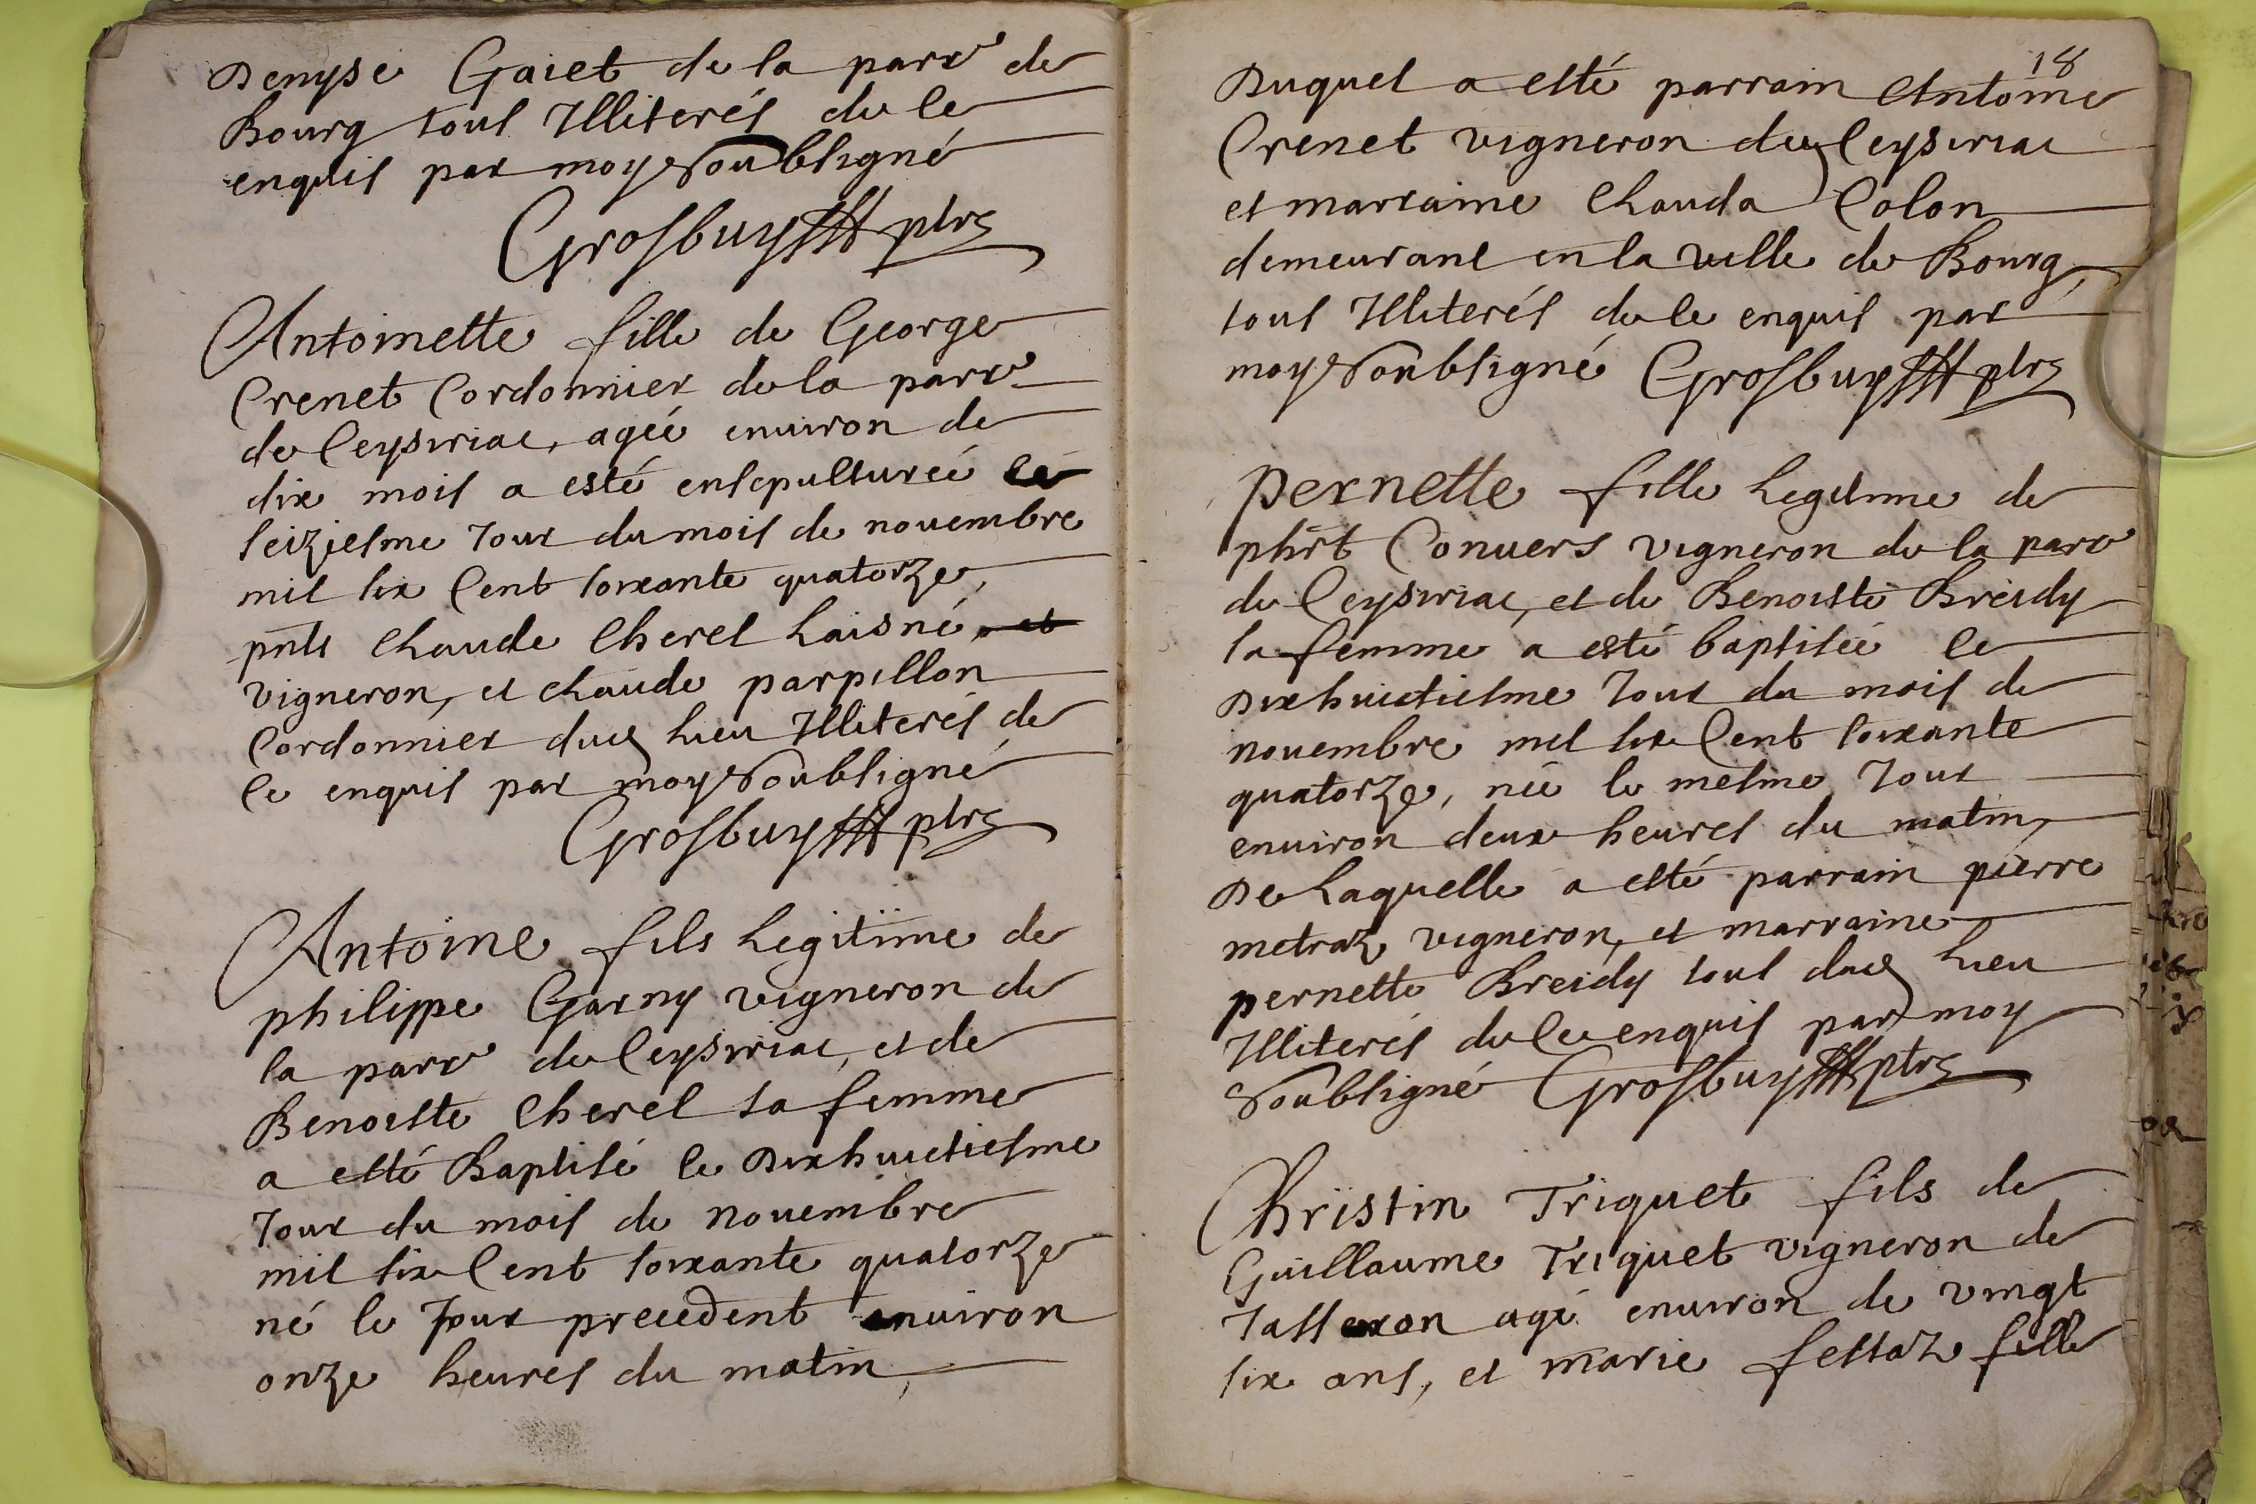 Denyse Gaiet de la parr^e de
Bourg tous Illiterés de le
enquis par moy Soubsigné
Grosbuy ptre
Antoinette fille de George
Crenet Cordonnier de la parr^e
de Ceysiriac, agée enuiron de
dix mois a esté ensepulturée le
seiziesme Jour du mois de nouembre
mil six Cent soixante quatorze,
pnts Claude Cherel Laisné, et
vigneron, et claude parpillon
Cordonnier dud Lieu Illiterés de
le enquis par moy Soubsigné
Grosbuy ptre
Antoine fils Legitime de
philippe Garny vigneron de
la parr^e de Ceysiriac, et de
Benoiste Cherel sa femme
a esté Baptisé le Dixhuictiesme
Jour du mois de nouembre
mil six Cent soixante quatorze
né le Jour precedent enuiron
onze heures du matin,
18
Duquel a esté parrain Antoine
Crenet vigneron dud Ceysiriac
et marraine Clauda Colon
demeurant en la ville de Bourg,
tous Illiterés de le enquis par
moy Soubsigné Grosbuy ptre
Pernette fille Legitime de
phrt Conuers vigneron de la parr^e
de Ceysiriac, et de Benoiste Breidy
sa femme a esté baptisée le
Dixhuictiesme Jour du mois de
nouembre mil six Cent soixante
quatorze, née le mesme Jour
enuiron deux heures du matin,
De Laquelle a esté parrain pierre
metraz vigneron, et marraine
pernette Breidy tous dud Lieu
Illiterés de le enquis par moy
Soubsigné Grosbuy ptre
Christin Triquet fils de
Guillaume Triquet vigneron de
Jasseron agé enuiron de vingt
six ans, et marie festaz fille